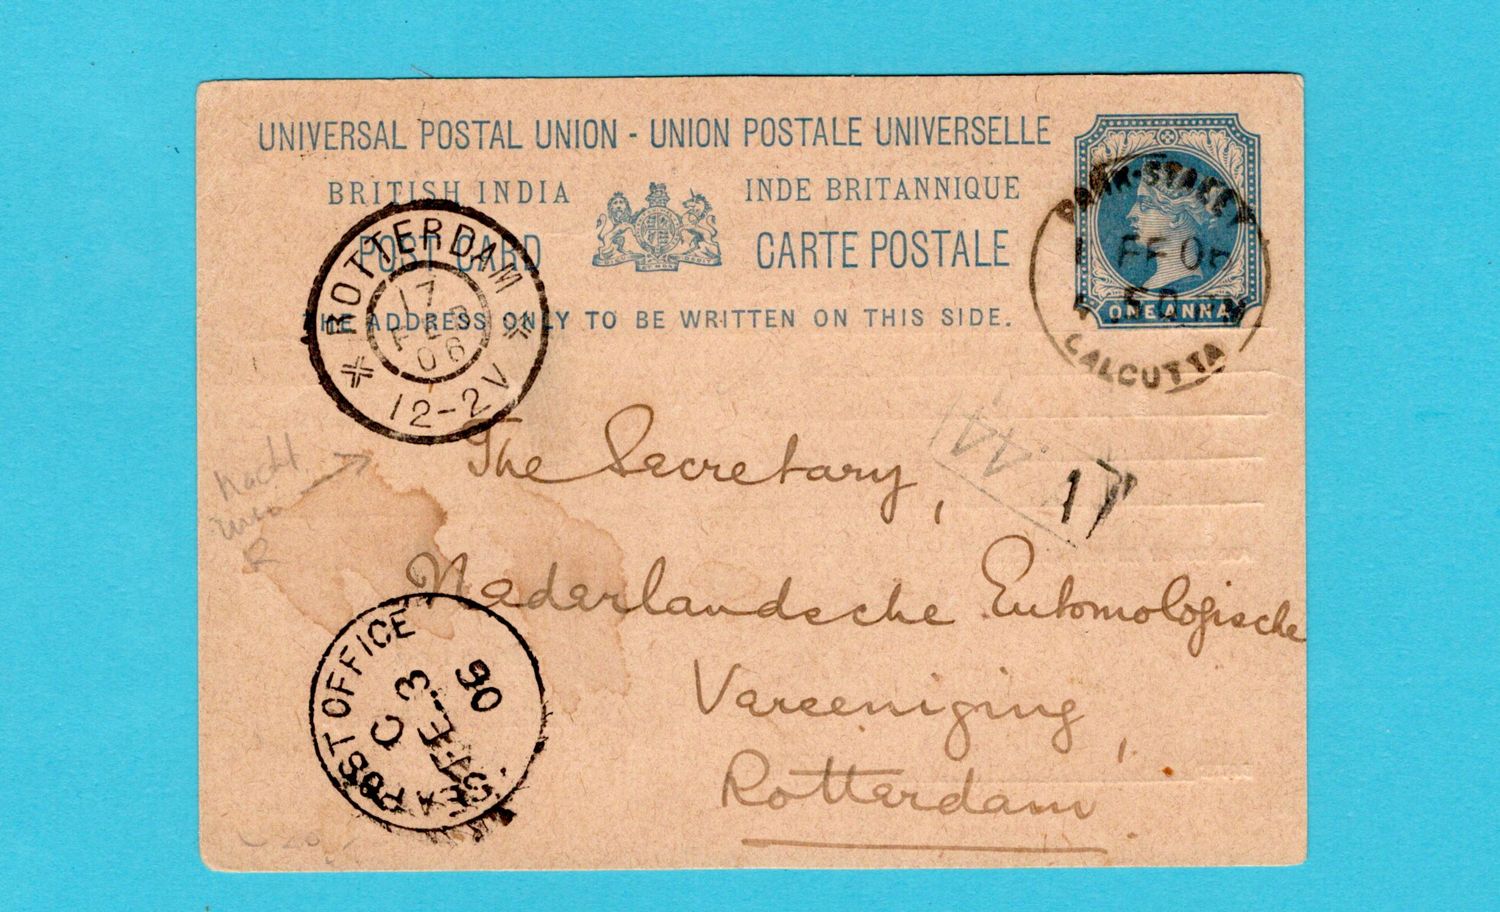 UNIVERSAL POSTAL UNION - UNION POSTALE UNIVERSELLE
BRITISH INDIA INDE BRITANNIQUE
POST CARD CARTE POSTALE
THE ADDRESS ONLY TO BE WRITTEN ON THIS SIDE.
ONE ANNA
PARK-STREET
1 FE 06
CALCUTTA
ROTTERDAM
17
FEB
06
12-2V
44
17
The Secretary,
Nederlandsche Entomologische
Vereeniging,
Rotterdam
nacht
SEA POST OFFICE
C
3 FE
06